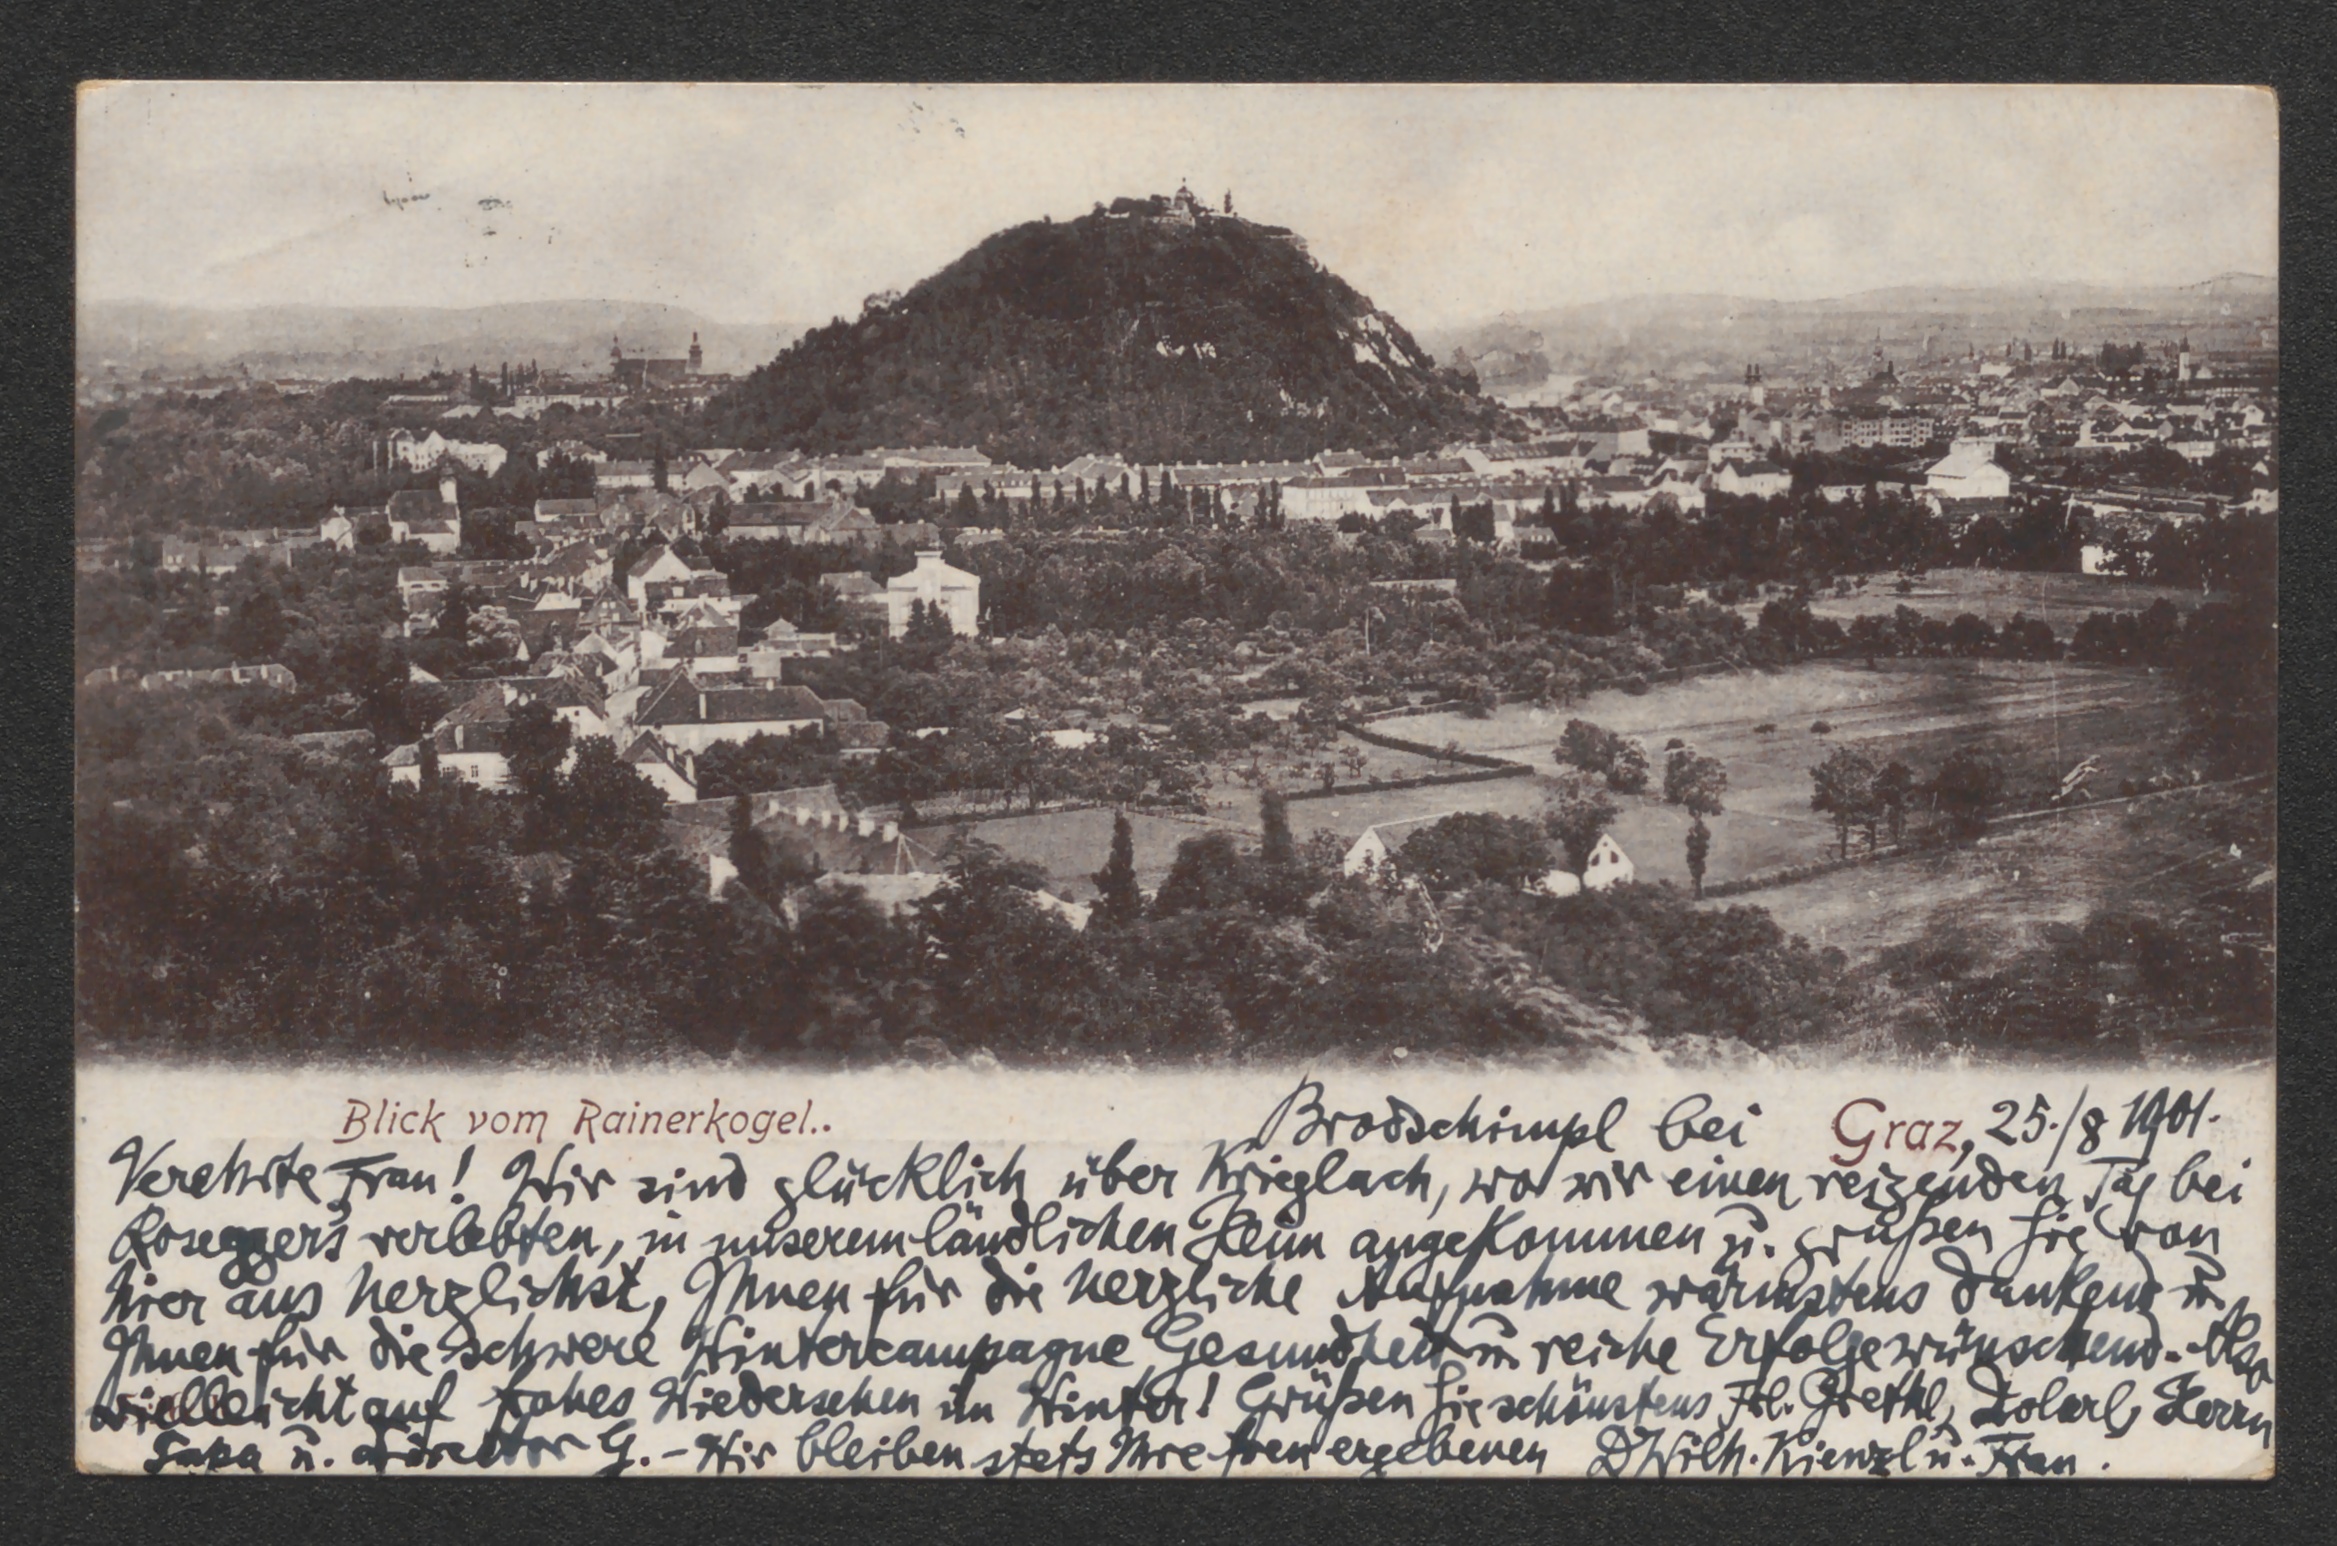 Blick vom Rainerkogel..
Brodschimpl bei Graz, 25./8 1901.
Verehrte Frau! Wir sind glücklich über Krieglach, wo wir einen reizenden Tag bei
Roseggers verlebten, in unserem ländlichen Heim angekommen u. grüßen Sie von
hier aus herzlichst, Ihnen für die herzliche Aufnahme wärmstens dankend u.
Ihnen für die schwere Wintercampagne Gesundheit u. reiche Erfolge wünschend. Also
vielleicht auf frohes Wiedersehen im Winter! Grüßen Sie schönstens Frl. Grethl, Herrn
Papa u. Director G. – Wir bleiben stets Ihre treu ergebenen D Wilh. Kienzl u. Frau.